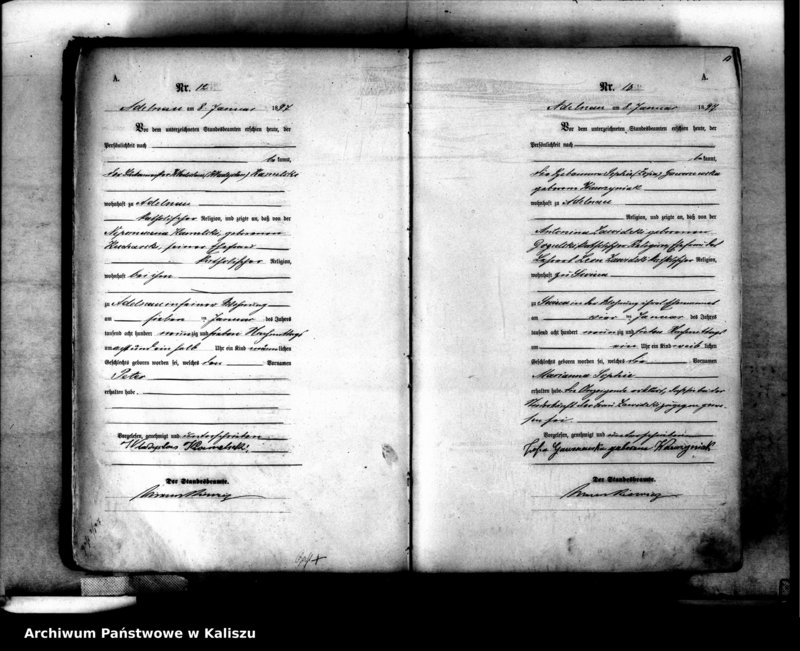 A.
Nr. 12
Adelnau am 8. Januar 1897
Vor dem unterzeichneten Standesbeamten erschien heute, der
Persönlichkeit nach
bekannt,
der (Wladyslaus) Kamelski
wohnhaft zu Adelnau
katholischer Religion, und zeigte an, daß von der
Kamelski, geborenen
seiner Ehefrau
katholischer Religion,
wohnhaft bei ihm
zu Adelnau in seiner Wohnung
am sieben ten Januar des Jahres
tausend acht hundert neunzig und sieben Nachmittags
um acht und ein halb Uhr ein Kind männlichen
Geschlechts geboren worden sei, welches den Vornamen
Peter
erhalten habe.
Vorgelesen, genehmigt und unterschrieben
Wladyslaus Kamelski.
Der Standesbeamte.
A.
Nr. 13
Adelnau am 8. Januar 1897
Vor dem unterzeichneten Standesbeamten erschien heute, der
Persönlichkeit nach
bekannt,
die Hebamme Sophie (Zofia) Gawronska
geborene
wohnhaft zu Adelnau
Religion, und zeigte an, daß von der
Antonina Zawidzki geborenen
katholischer Religion Ehefrau des
Leon Zawidzki katholischer Religion,
wohnhaft zu
zu in der Wohnung ihres Ehemannes
am vier ten Januar des Jahres
tausend acht hundert neunzig und sieben Nachmittags
um vier Uhr ein Kind weiblichen
Geschlechts geboren worden sei, welches die Vornamen
Marianna Sophie
erhalten habe. Die Anzeigende erklärt, daß sie bei der
Niederkunft der Frau Zawidzki zugegen gewe-
sen sei.
Vorgelesen, genehmigt und unterschrieben
Zofia Gawronska geborene
Der Standesbeamte.
Archiwum Państwowe w Kaliszu